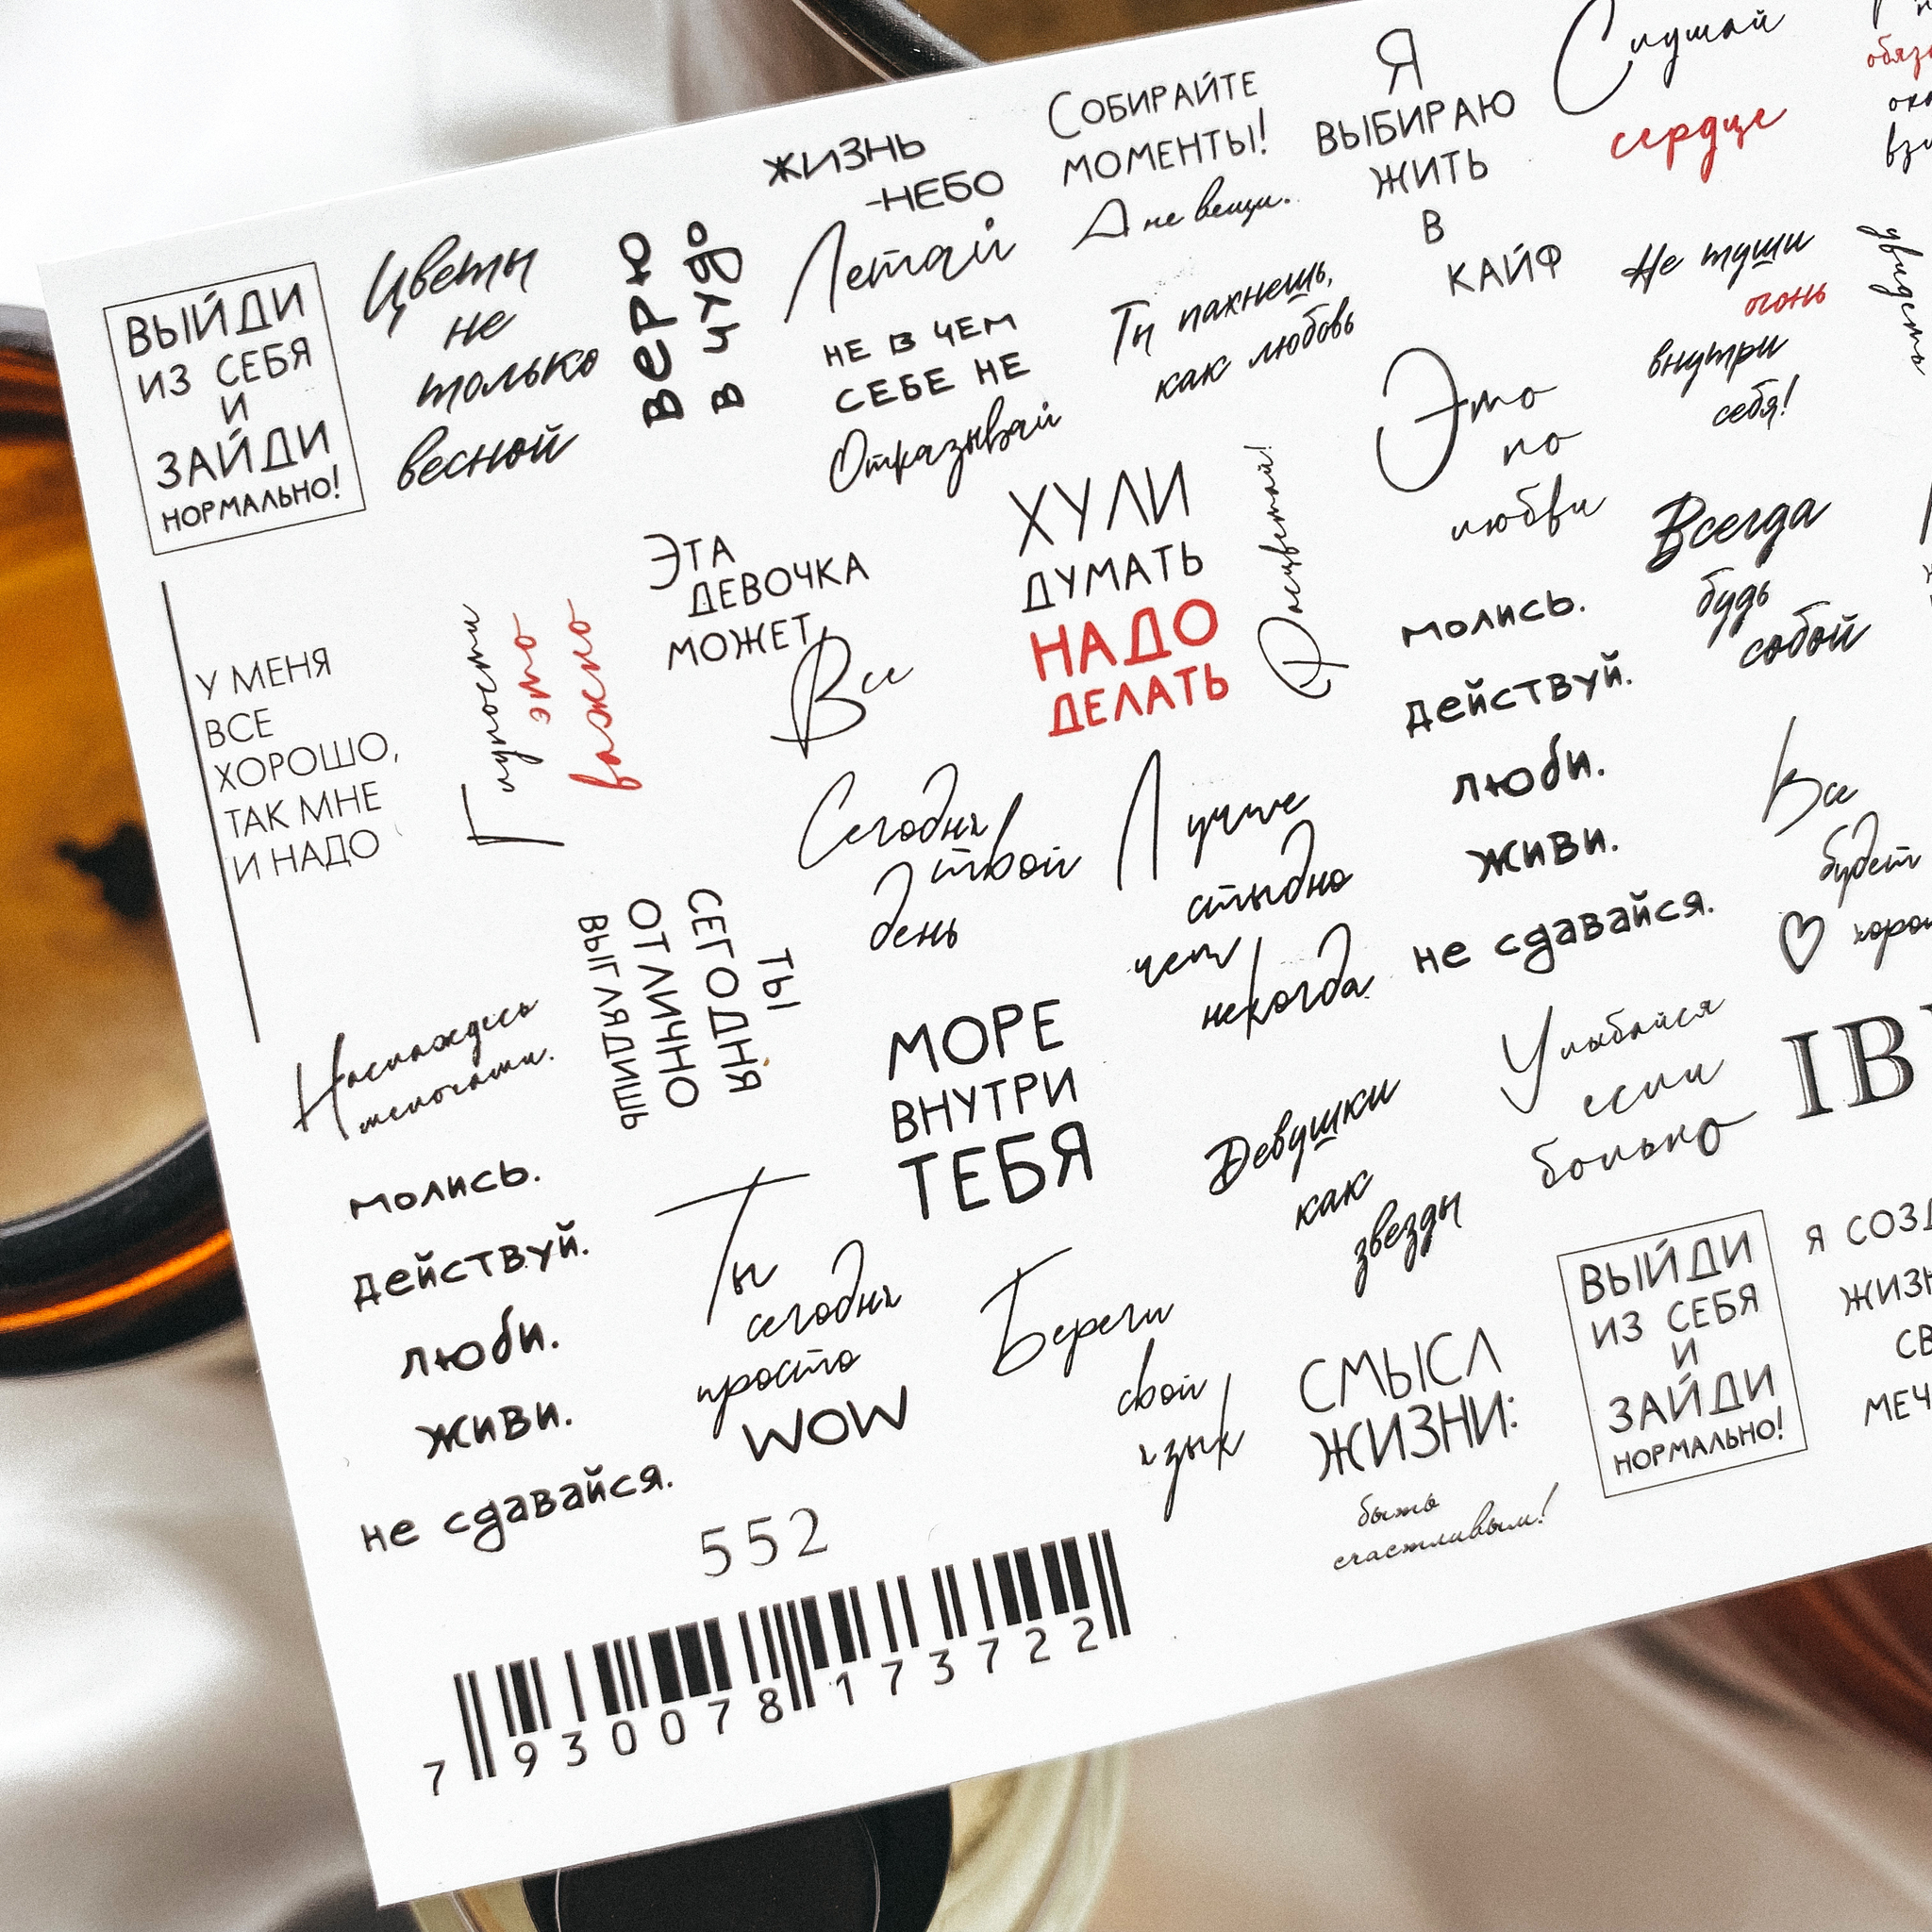 ВЫЙДИ
ИЗ СЕБЯ
И
ЗАЙДИ
НОРМАЛЬНО!
Цветы
не
только
весной
Верю
в чудо
ЖИЗНЬ
-НЕБО
Летай
СОБИРАЙТЕ
МОМЕНТЫ!
А не вещи.
Я
ВЫБИРАЮ
ЖИТЬ
В
КАЙФ
Слушай
сердце
НЕ В ЧЕМ
СЕБЕ НЕ
Отказывай
Ты пахнешь,
как любовь
Не туши
огонь
внутри
себя!
увидеть
Это
по
любви
У МЕНЯ
ВСЕ
ХОРОШО,
ТАК МНЕ
И НАДО
Глупости
это
важно
ЭТА
ДЕВОЧКА
МОЖЕТ
Все
ХУЛИ
ДУМАТЬ
НАДО
ДЕЛАТЬ
Расцветай!
Всегда
будь
собой
молись.
действуй.
люби.
живи.
не сдавайся.
Сегодня
твой
день
Лучше
стыдно
чем
некогда
Все
будет
ТЫ
СЕГОДНЯ
ОТЛИЧНО
ВЫГЛЯДИШЬ
Наслаждесь
мелочами.
МОРЕ
ВНУТРИ
ТЕБЯ
Девушки
как
звезды
Улыбайся
если
больно
молись.
действуй.
люби.
живи.
не сдавайся.
Ты
сегодня
просто
WOW
Береги
свой
язык
СМЫСЛ
ЖИЗНИ:
быть
счастливым!
ВЫЙДИ
ИЗ СЕБЯ
И
ЗАЙДИ
НОРМАЛЬНО!
Я
552
7 930078 173722